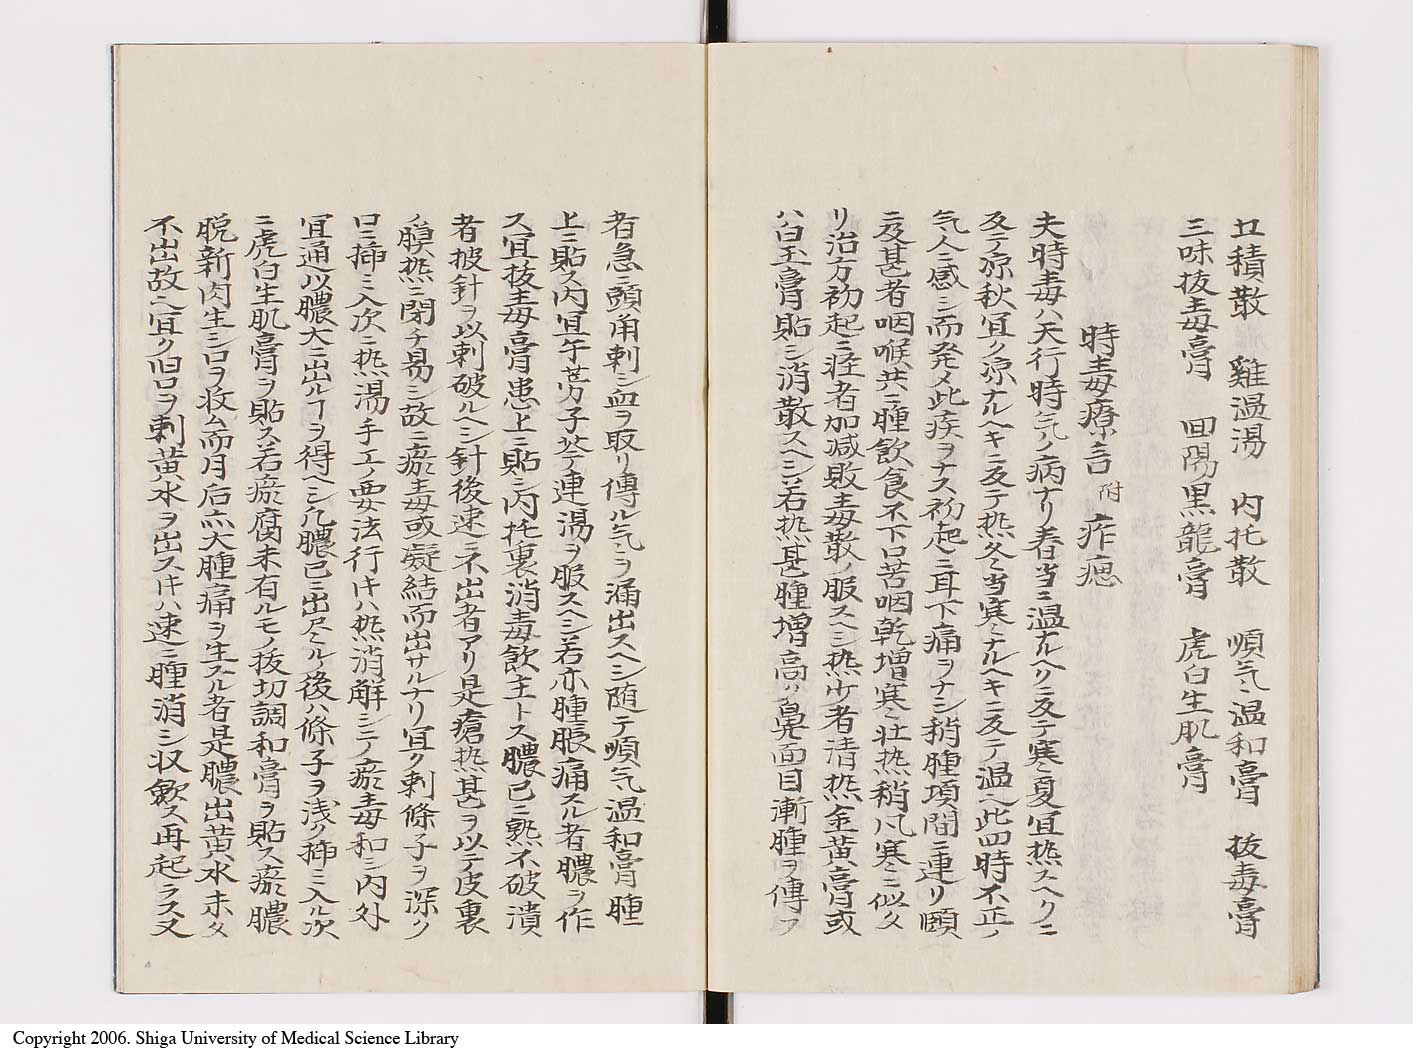 五積散　雞温湯　内托散　順気温和膏　抜毒膏
三味抜毒膏　回陽黒龍膏　虎白生肌膏
時毒療言 附 痄腮
夫時毒ハ天行時気ノ病ナリ春当ニ温ナルヘクニ反テ寒ク夏宜熱スヘクニ
反テ凉秋宜ク凉ナルヘキニ反テ熱冬ハ当寒ナルヘキニ反テ温ヘ此四時不正ノ
気人ニ感シ而発メ此疾ヲナス初起ニ耳下痛ヲナシ稍腫項間ニ連リ頤
ニ及甚者咽喉共ニ腫飲食不下口苦咽乾増寒壮熱稍凡寒ニ似タ
リ治方初起ニ在者加减敗毒散ノ服スヘシ熱少者清熱金黄膏或
ハ白玉膏貼シ消散スヘシ若熱甚腫増高ク鼻面目漸腫ヲ傳フ
者急ニ頭角刺シ血ヲ取リ傳ル気ヲ涌出スヘシ随テ順気温和膏腫
上ニ貼ス内宜牛蒡子芩連湯ヲ服スヘシ若亦腫脹痛スル者膿ヲ作
ス宜抜毒膏患上ニ貼シ内托裏消毒飲主トス膿已ニ熟不破潰
者披針ヲ以刺破ルヘシ針後速ニ不出者アリ是瘡熱甚ヲ以テ皮裏
ノ膜熱ニ閉チ易シ故ニ瘀毒或凝結而出サルナリ宜ク刺條子ヲ深ク
口ニ挿ミ入次ニ熱湯手エノ要法行キハ熱消解シテ瘀毒和シ内外
宜通以膿大ニ出ルヿヲ得ヘシ凡膿已ニ出尽ル後ハ條子ヲ浅ク挿ミ入ル次
ニ虎白生肌膏ヲ貼ス若瘀腐未有ルモノ抜切調和膏ヲ貼ス瘀膿
脱新肉生シ口ヲ收ム而月后亦大腫痛ヲ生スル者是膿出黄水未タ
不出故ヘ宜ク旧口ヲ刺黄水ヲ出スキハ速ニ腫消シ収斂ス再起ラス又
Copyright 2006. Shiga University of Medical Science Library